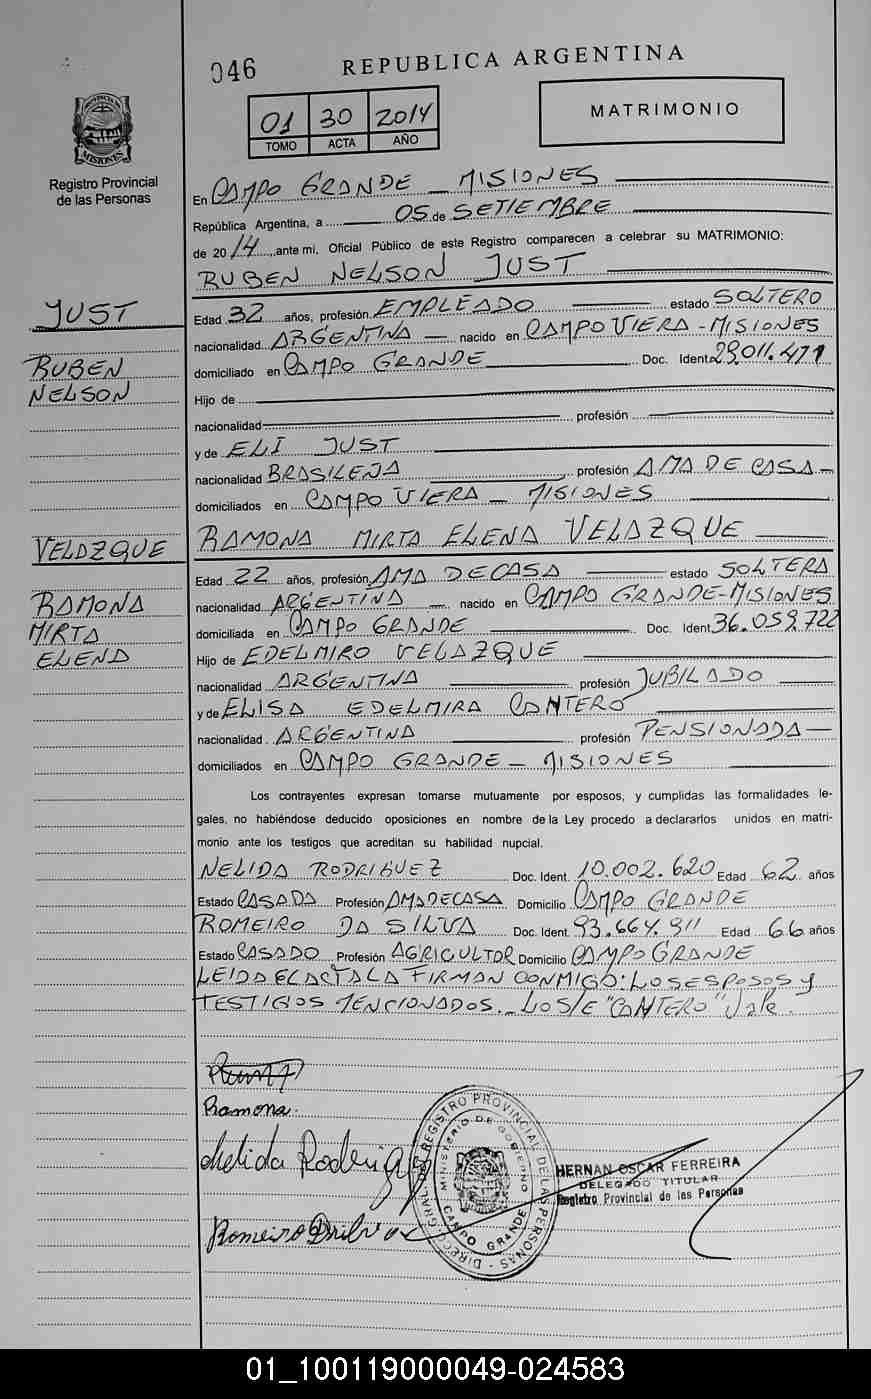 046
REPUBLICA ARGENTINA
01 30 2014
TOMO ACTA AÑO
MATRIMONIO
PROVINCIA DE
MISIONES
Registro Provincial
de las Personas
En CAMPO GRANDE _ MISIONES
República Argentina, a 05 de SETIEMBRE
de 2014, ante mi, Oficial Público de este Registro comparecen a celebrar su MATRIMONIO:
RUBEN NELSON JUST
JUST
RUBEN
NELSON
Edad 32 años, profesión EMPLEADO estado SOLTERO
nacionalidad ARGENTINA — nacido en CAMPO VIERA - MISIONES
domiciliado en CAMPO GRANDE Doc. Ident. 29.011.471
Hijo de
nacionalidad profesión
y de ELI JUST
nacionalidad BRASILEÑA profesión AMA DE CASA —
domiciliados en CAMPO VIERA — MISIONES
RAMONA MIRTA ELENA VELAZQUE
VELAZQUE
RAMONA
MIRTA
ELENA
Edad 22 años, profesión AMA DE CASA estado SOLTERA
nacionalidad ARGENTINA — nacido en CAMPO GRANDE-MISIONES
domiciliada en CAMPO GRANDE Doc. Ident. 36.059.722
Hijo de EDELMIRO VELAZQUE
nacionalidad ARGENTINA profesión JUBILADO
y de ELISA EDELMIRA CANTERO
nacionalidad ARGENTINA profesión PENSIONADA —
domiciliados en CAMPO GRANDE — MISIONES
Los contrayentes expresan tomarse mutuamente por esposos, y cumplidas las formalidades le-
gales, no habiéndose deducido oposiciones en nombre de la Ley procedo a declararlos unidos en matri-
monio ante los testigos que acreditan su habilidad nupcial.
NELIDA RODRIGUEZ Doc. Ident. 10.002.620 Edad 62 años
Estado CASADA Profesión AMA DE CASA Domicilio CAMPO GRANDE
ROMEIRO DA SILVA Doc. Ident. 93.664.911 Edad 66 años
Estado CASADO Profesión AGRICULTOR Domicilio CAMPO GRANDE
LEIDA EL ACTA LA FIRMAN CONMIGO: LOS ESPOSOS y
TESTIGOS MENCIONADOS._ LO S/E "CANTERO" Vale.
Ramona.
Nelida Rodriguez
DIREC. GRAL. DE REGISTRO PROVINCIAL DE LAS PERSONAS
MINISTERIO DE GOBIERNO
CAMPO GRANDE
HERNAN OSCAR FERREIRA
DELEGADO TITULAR
Registro Provincial de las Personas
01_100119000049-024583